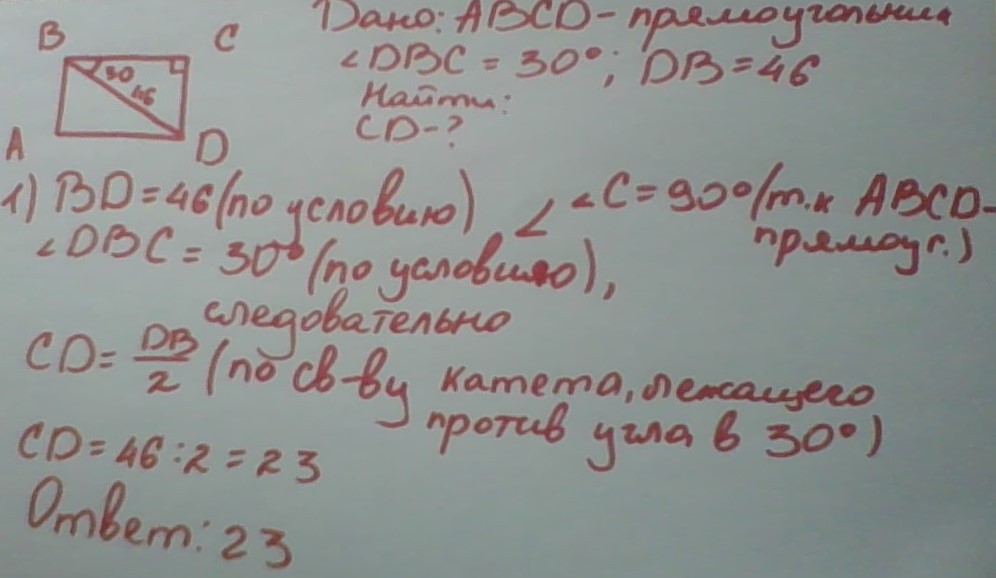 B
C
30
46
A
D
Дано: ABCD - прямоугольник
∠DBC = 30°; DB = 46
Найти:
CD - ?
1) BD = 46 (по условию) ∠
∠C = 90° (т.к ABCD-
прямоуг.)
∠DBC = 30° (по условию),
следовательно
CD = DB/2 (по св-ву катета, лежащего
против угла в 30°)
CD = 46 : 2 = 23
Ответ: 23